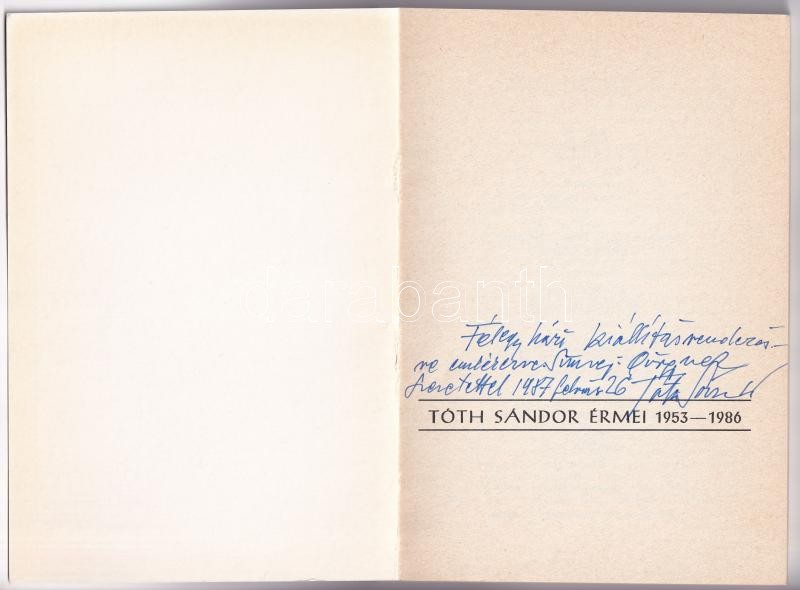 Félegyházi kiállításrendezés-
re emlékezve Sümegi Györgynek
Szeretettel 1987 február 26 Tóth Sándor
TÓTH SÁNDOR ÉRMEI 1953—1986